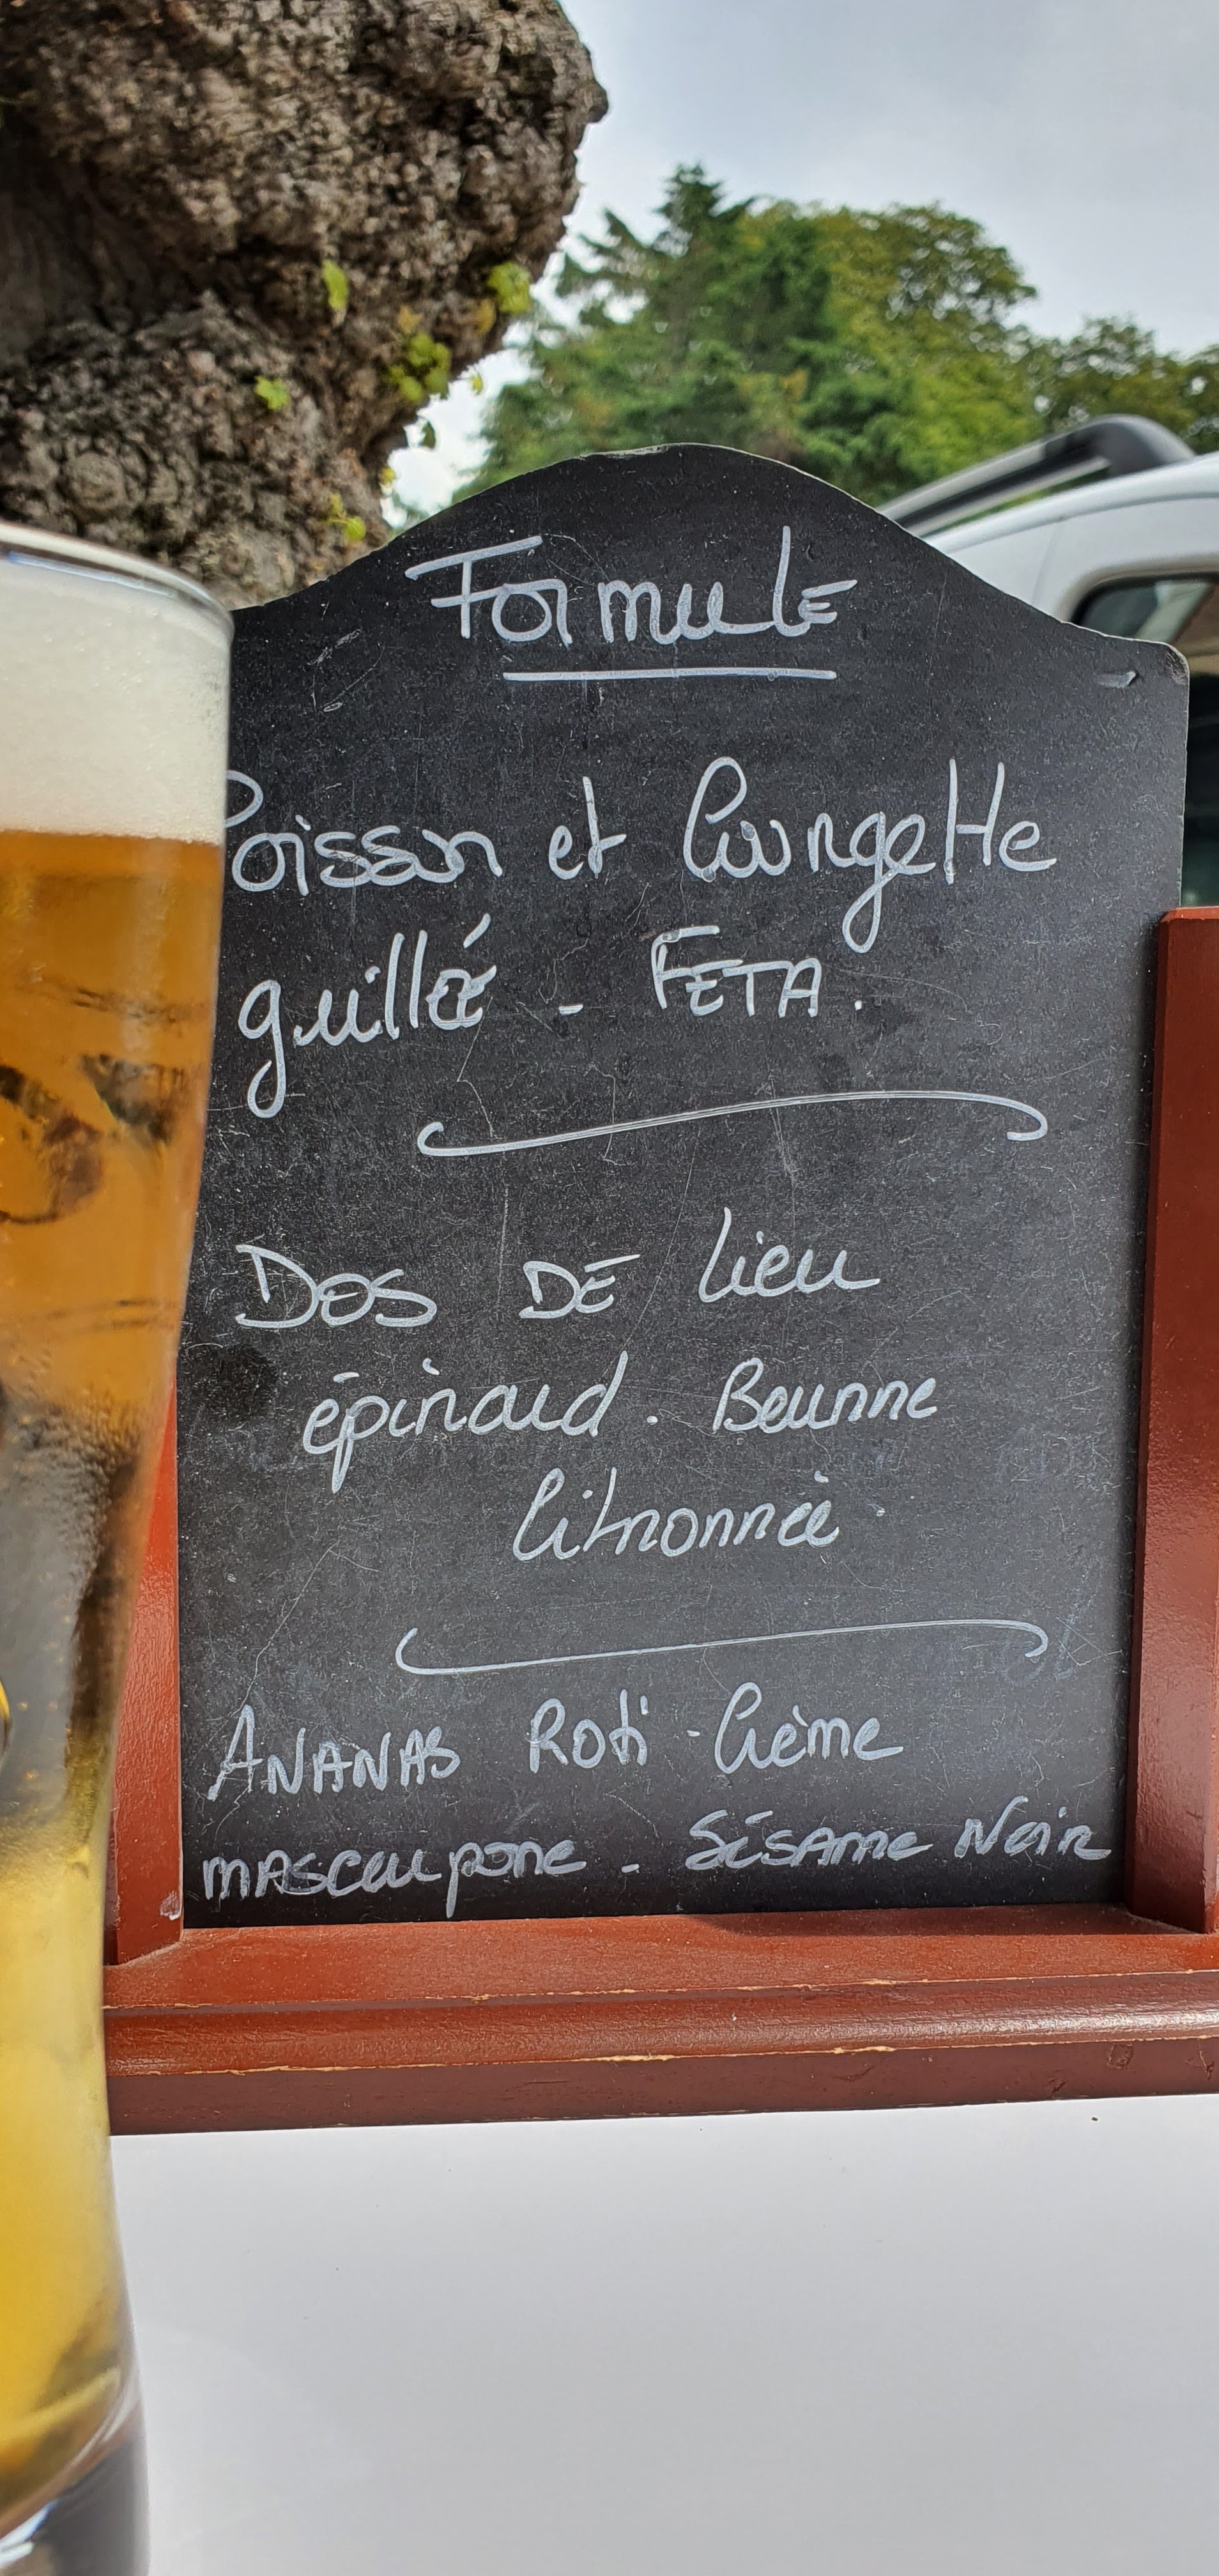 Formule
Poisson et Courgette
grillé - FETA.
DOS DE Lieu
épinard. Beurre
Citronnée
ANANAS Roti - Crème
mascarpone - SÉSAME Noir